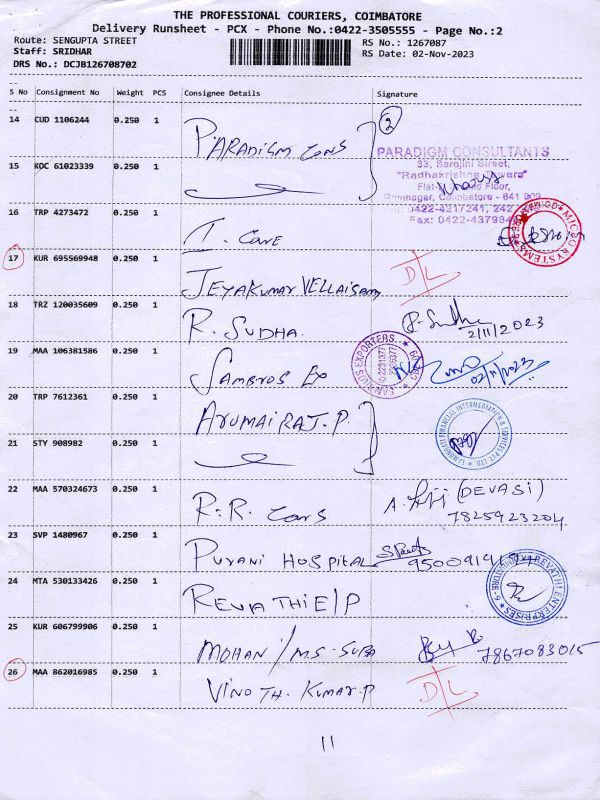 THE PROFESSIONAL COURIERS, COIMBATORE
Delivery Runsheet - PCX - Phone No.:0422-3505555 - Page No.:2
Route: SENGUPTA STREET
RS No.: 1267087
Staff: SRIDHAR
RS Date: 02-Nov-2023
DRS No.: DCJB126708702
S No Consignment No Weight PCS Consignee Details Signature
14 CUD 1106244 0.250 1 PARADIGM Cons 2
PARADIGM CONSULTANTS
33, Sarojini Street,
"Radhakrishna Towers"
15 KOC 61023339 0.250 1
Floor,
Ramnagar, Coimbatore - 641 009
0422-4217241, 242
Fax: 0422-43798
16 TRP 4273472 0.250 1 I. Care
MICRO SYSTEMS
17 KUR 695569948 0.250 1 JEYAKUMAR VELLAISAMY D/L
18 TRZ 120035609 0.250 1 R. SUDHA. R. Sudha
2/11/2023
19 MAA 106381586 0.250 1 SAMBROS Ex
EXPORTERS
02/11/2023
20 TRP 7612361 0.250 1 ARUMAIRAJ.P.
21 STY 908982 0.250 1
22 MAA 570324673 0.250 1 R.R. Cars (DEVASI)
7825923204
23 SVP 1480967 0.250 1 PURANI HOSPITAL
24 MTA 530133426 0.250 1 REVATHI E/P
REVATHI ENTERPRISES
25 KUR 606799906 0.250 1 MOHAN / MS. SUBA
7867083015
26 MAA 862016985 0.250 1 VINOTH. KUMAR.P D/L
11